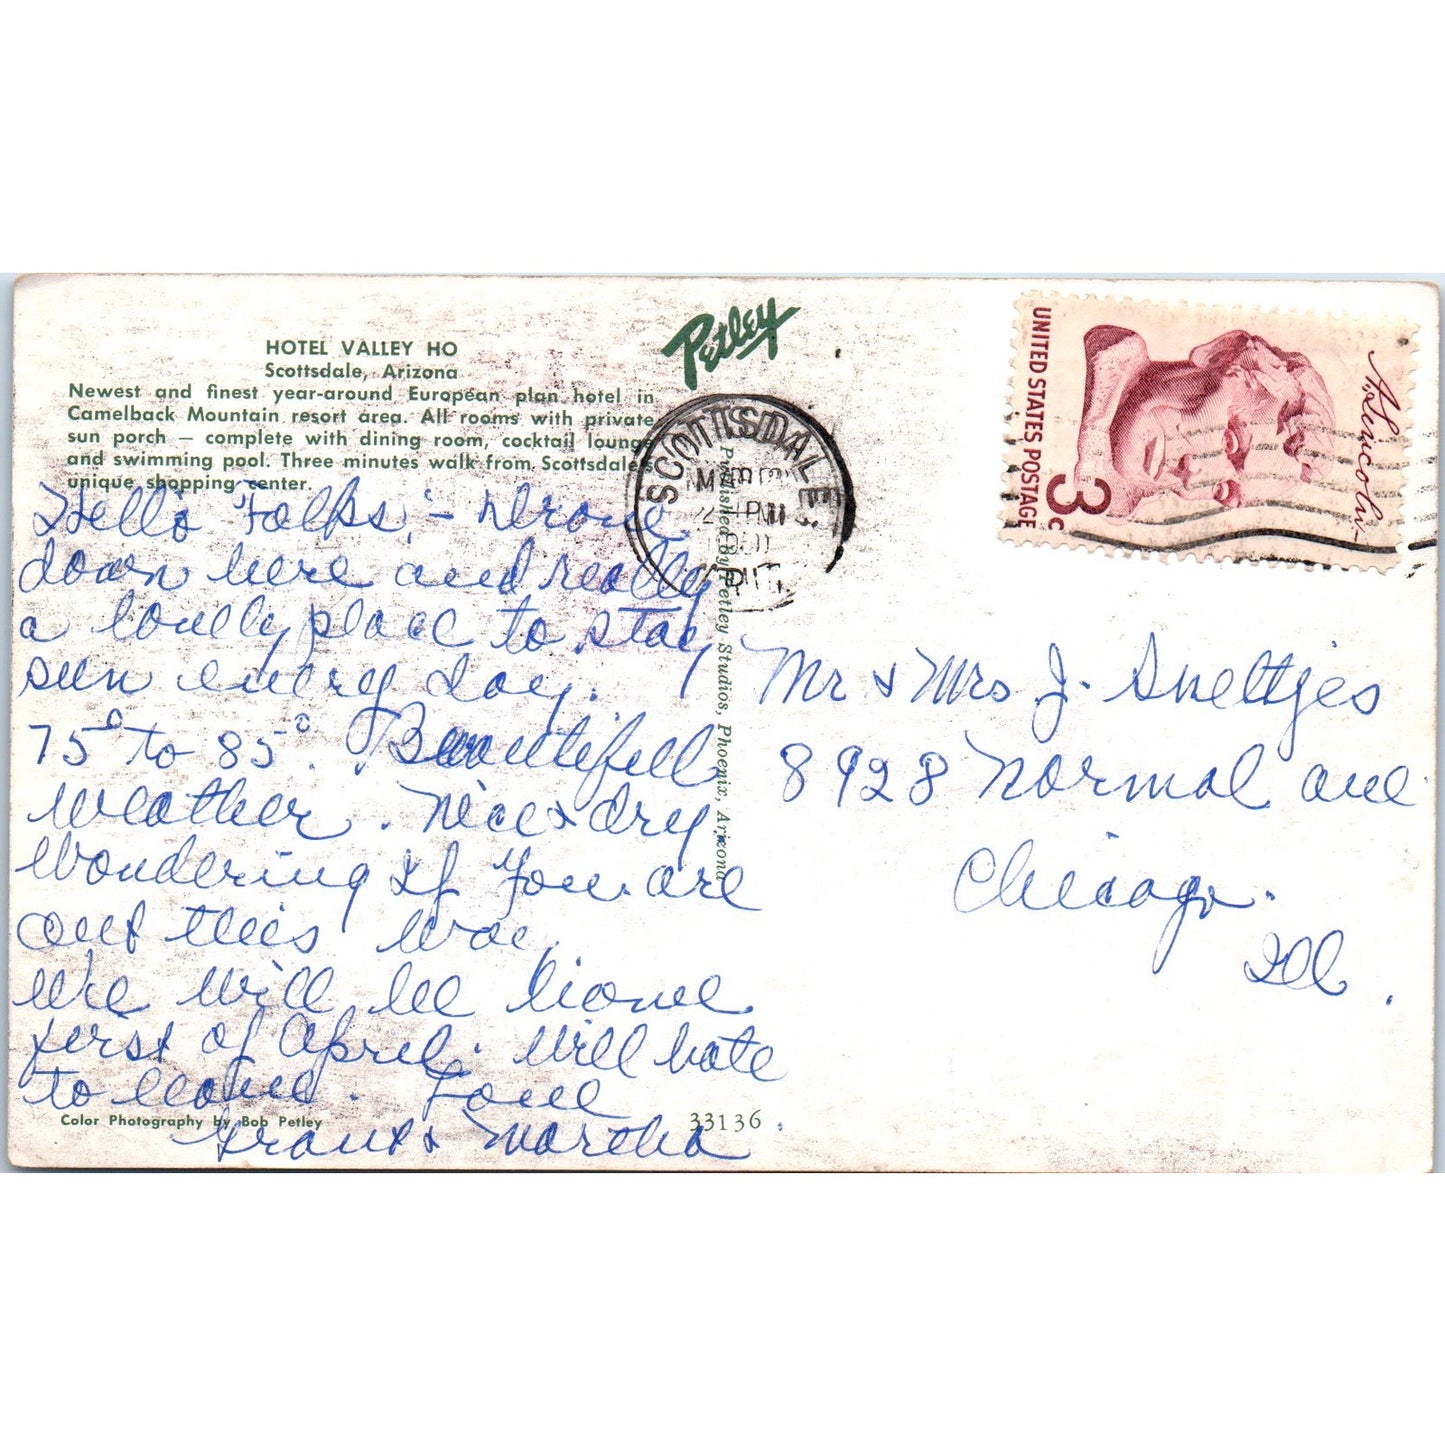 HOTEL VALLEY HO
Scottsdale, Arizona
Newest and finest year-around European plan hotel in
Camelback Mountain resort area. All rooms with private
sun porch — complete with dining room, cocktail lounge
and swimming pool. Three minutes walk from Scottsdale's
unique shopping center.
Hello Folks; – Drove
down here and really
a lovely place to stay
sun every day.
75° to 85°. Beautiful
Weather. Nice & dry.
Wondering if You are
out this way.
We will be home
first of April. Will hate
to leave. Love
Grant & Martha
Color Photography by Bob Petley
33136
Petley
Published by Petley Studios, Phoenix, Arizona
SCOTTSDALE
MAR
PM
ARIZ
UNITED STATES POSTAGE
3c
A. Lincoln
Mr & Mrs J. Sweltjes
8928 Normal ave
Chicago.
Ill.